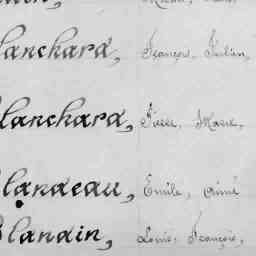 Blanchard, François, Julien,
Blanchard, Pierre, Marie,
Blandeau, Emile, Aimé
Blandin, Louis, François,